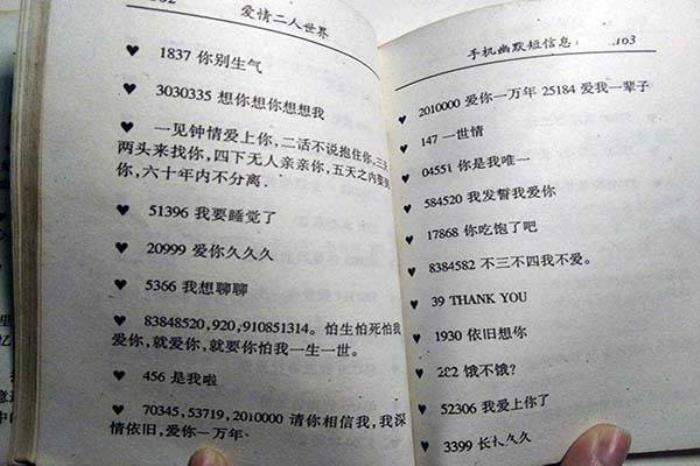 爱情二人世界
♥ 1837 你别生气
♥ 3030335 想你想你想想我
♥ 一见钟情爱上你,二话不说抱住你,三
两头来找你,四下无人亲亲你,五天之内娶到
你,六十年内不分离.
♥ 51396 我要睡觉了
♥ 20999 爱你久久久
♥ 5366 我想聊聊
♥ 83848520,920,910851314。怕生怕死怕我
爱你,就爱你,就要你怕我一生一世。
♥ 456 是我啦
♥ 70345,53719,2010000 请你相信我,我深
情依旧,爱你一万年.
手机幽默短信息 163
♥ 2010000 爱你一万年 25184 爱我一辈子
♥ 147 一世情
♥ 04551 你是我唯一
♥ 584520 我发誓我爱你
♥ 17868 你吃饱了吧
♥ 8384582 不三不四我不爱。
♥ 39 THANK YOU
♥ 1930 依旧想你
♥ 282 饿不饿?
♥ 52306 我爱上你了
♥ 3399 长长久久